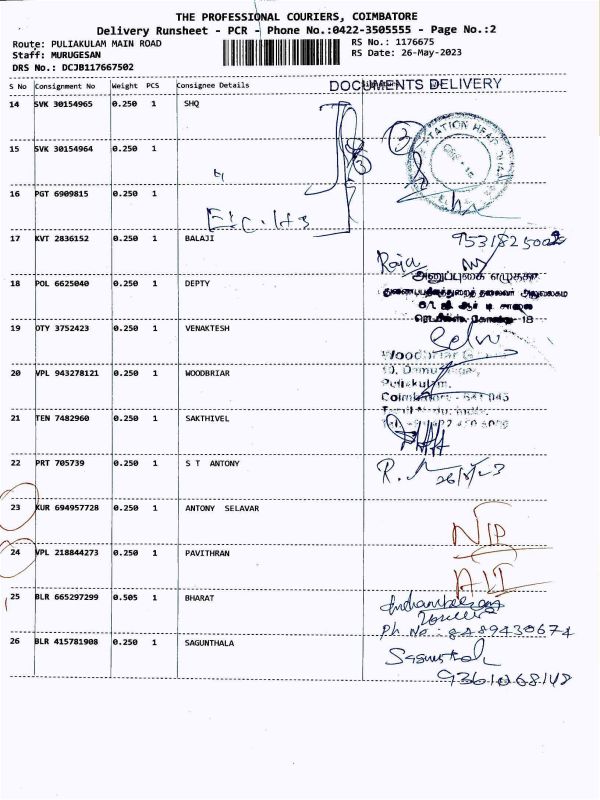 THE PROFESSIONAL COURIERS, COIMBATORE
Delivery Runsheet - PCR - Phone No.:0422-3505555 - Page No.:2
Route: PULIAKULAM MAIN ROAD
RS No.: 1176675
Staff: MURUGESAN
RS Date: 26-May-2023
DRS No.: DCJB117667502
S No Consignment No Weight PCS Consignee Details DOCUMENTS DELIVERY
14 SVK 30154965 0.250 1 SHQ
3 3
STATION HEAD QUARTERS
15 SVK 30154964 0.250 1
16 PGT 6909815 0.250 1
17 KVT 2836152 0.250 1 BALAJI
Raja
18 POL 6625040 0.250 1 DEPTY
அனுப்புகை எழுத்தர்
19 OTY 3752423 0.250 1 VENAKTESH
Selvi
20 VPL 943278121 0.250 1 WOODBRIAR
Woodbriar
Puliakulam,
Coimbatore - 641 045
Tamil Nadu, India.
21 TEN 7482960 0.250 1 SAKTHIVEL
22 PRT 705739 0.250 1 S T ANTONY
26/5/23
23 KUR 694957728 0.250 1 ANTONY SELAVAR
NIP
24 VPL 218844273 0.250 1 PAVITHRAN
25 BLR 665297299 0.505 1 BHARAT
Ph No: 8489430674
26 BLR 415781908 0.250 1 SAGUNTHALA
Sagunthala
9361068148